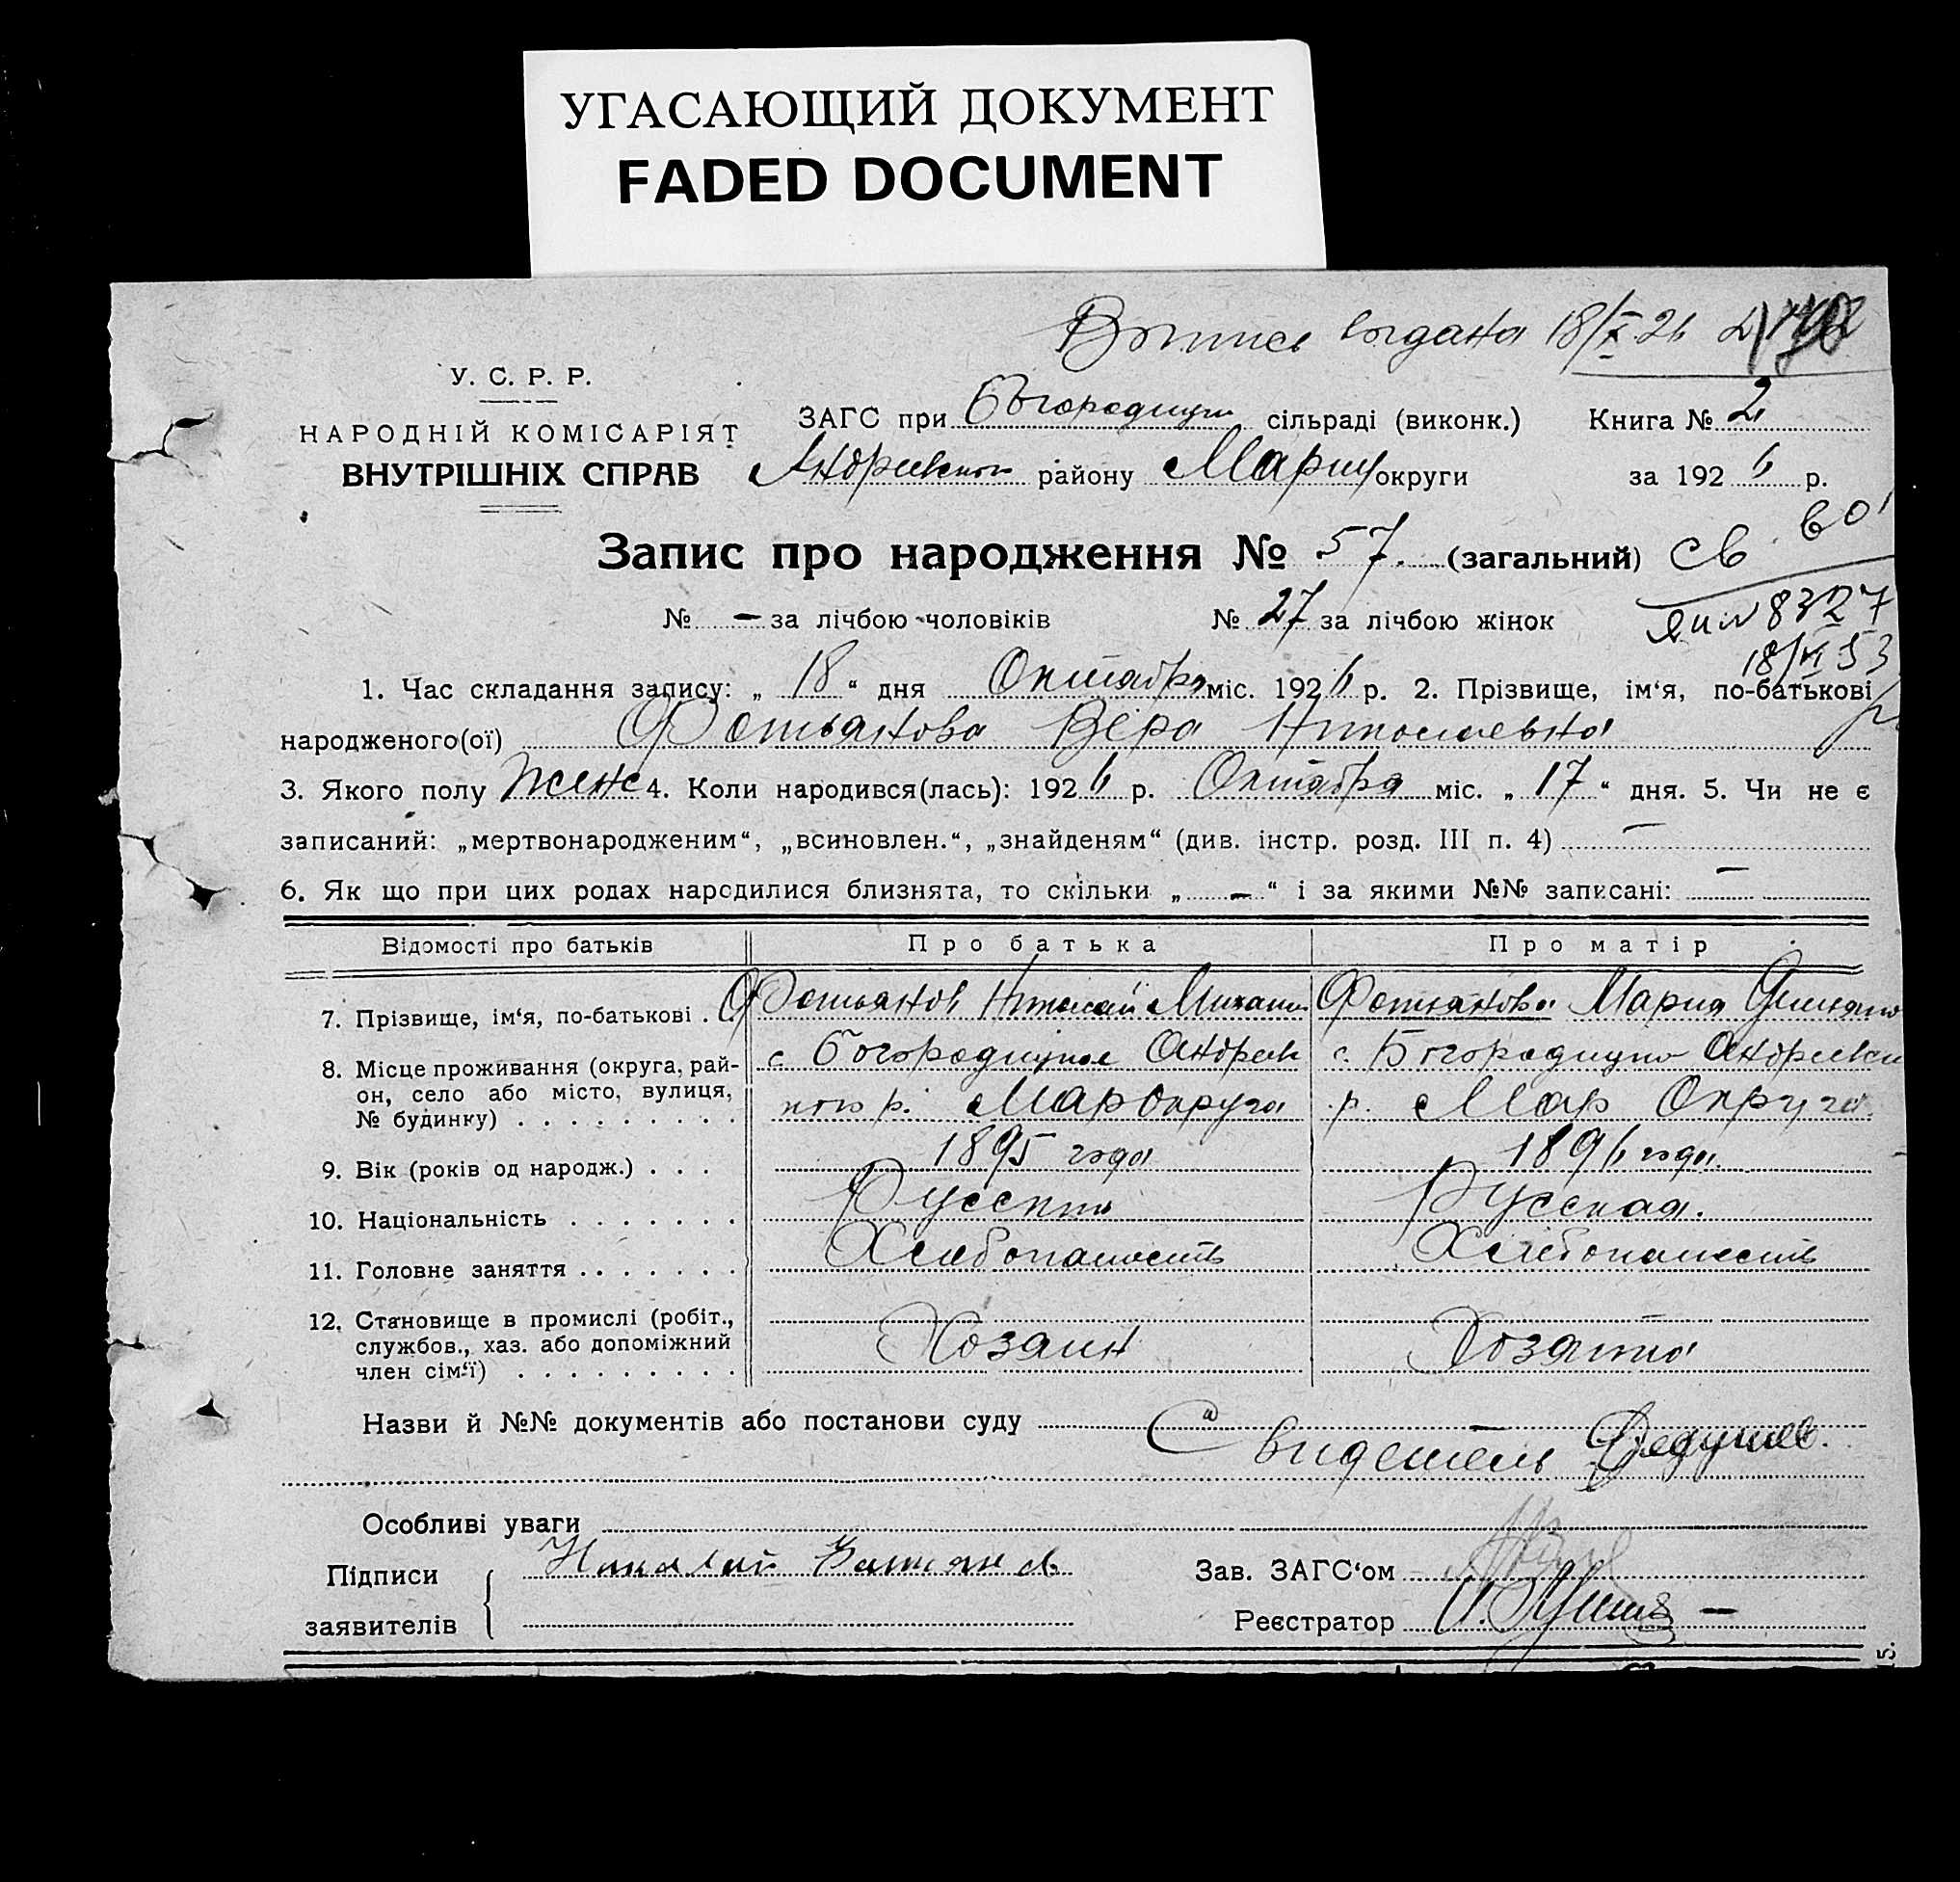 УГАСАЮЩИЙ ДОКУМЕНТ
FADED DOCUMENT
Выпись выдана 18/X 26
У. С. Р. Р.
НАРОДНІЙ КОМІСАРІЯТ
ВНУТРІШНІХ СПРАВ
ЗАГС при Богородицк сільраді (виконк.) Книга № 2
Андреевског району Мариу округи за 192 6 р.
Запис про народження № 57. (загальний) св
№ — за лічбою чоловіків № 27 за лічбою жінок
8327
18/VI 53
1. Час складання запису: „ 18 “ дня Октября міс. 192 6 р. 2. Прізвище, ім‘я, по-батькові
народженого(ої) Фотьянова Вера Николаевна
3. Якого полу женс 4. Коли народився(лась): 192 6 р. Октября міс. „ 17 “ дня. 5. Чи не є
записаний: „мертвонародженим“, „всиновлен.“, „знайденям“ (див. інстр. розд. III п. 4) —
6. Як що при цих родах народилися близнята, то скільки „ — “ і за якими №№ записані: —
Відомості про батьків Про батька Про матір
7. Прізвище, ім‘я, по-батькові . Фотьянов Николай Михаил Фотьянова Мария
8. Місце проживання (округа, рай-
он, село або місто, вулиця,
№ будинку) . . . . . . . . .
с Богородицкое Андреев
ког р. Мар округа
с. Богородицко Андреевск
р. Мар Округа
9. Вік (років од народж.) . . . 1895 года 1896 года
10. Національність . . . . . . . Русский Русская.
11. Головне заняття . . . . . . . Хлебопашест Хлебопашест
12. Становище в промислі (робіт.,
службов., хаз. або допоміжний
член сім‘ї) . . . . . . . . .
Хозяин Хозяйка
Назви й №№ документів або постанови суду
Свидетель
Особливі уваги
Підписи
заявителів
Николай Фатианов
Зав. ЗАГС‘ом
Реєстратор